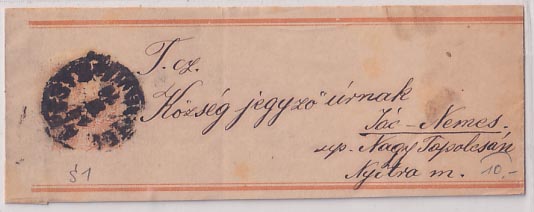 T. cz.
Község jegyző úrnak
Jác-Nemes.
up. Nagy Tapolcsán
Nyitra m. 10.-
§1